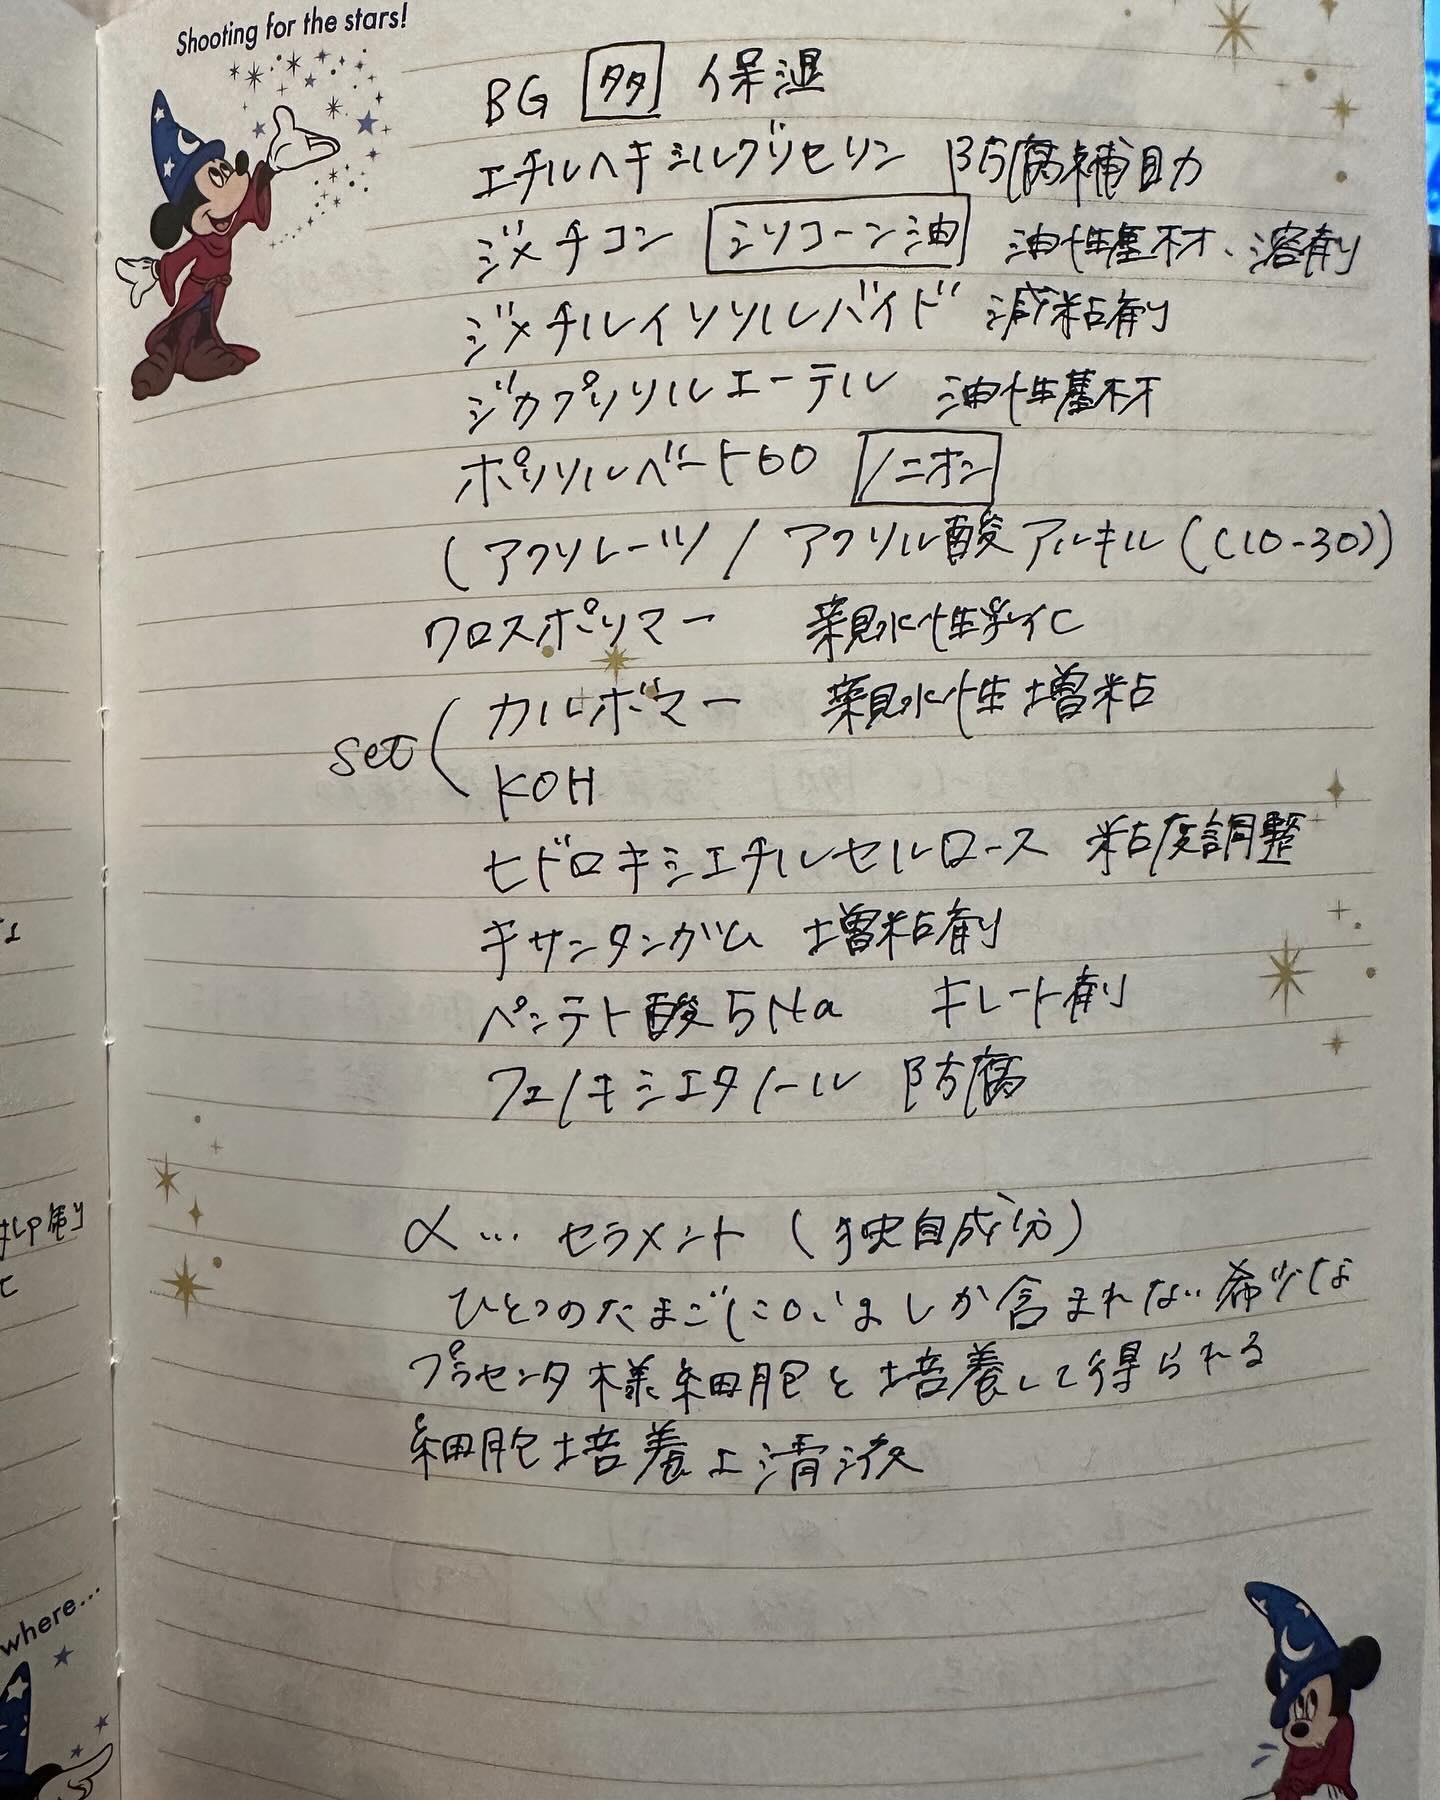 Shooting for the stars!
BG 多 保湿
エチルヘキシルグリセリン 防腐補助
ジメチコン シリコーン油 油性基材、溶剤
ジメチルイソソルバイド 減粘剤
ジカプリリルエーテル 油性基材
ポリソルベート60 ノニオン
(アクリレーツ/アクリル酸アルキル(C10-30))
クロスポリマー 親水性乳化
set( カルボマー 親水性増粘
KOH
ヒドロキシエチルセルロース 粘度調整
キサンタンガム 増粘剤
ペンテト酸5Na キレート剤
フェノキシエタノール 防腐
α… セラメント (独自成分)
ひとつのたまごに しか含まれない希少な
プラセンタ様細胞を培養して得られる
細胞培養上清液
where...